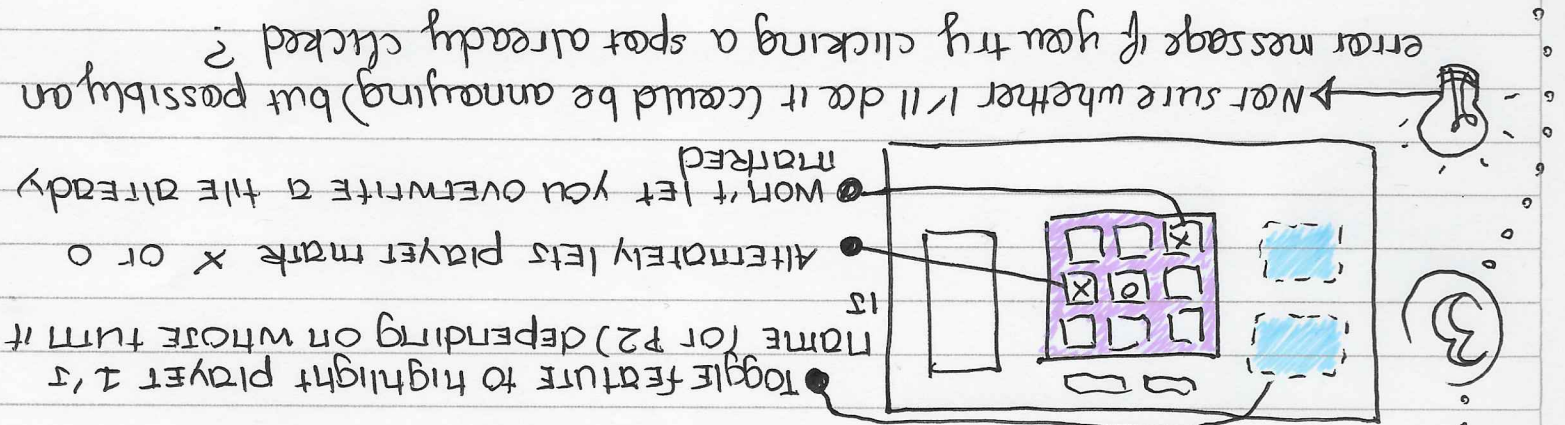 3
Toggle feature to highlight player 1's
name (or P2) depending on whose turn it
is
O X
X
Alternately lets player mark X or O
Won't let you overwrite a tile already
marked
Not sure whether I'll do it (could be annoying) but possibly an
error message if you try clicking a spot already clicked?